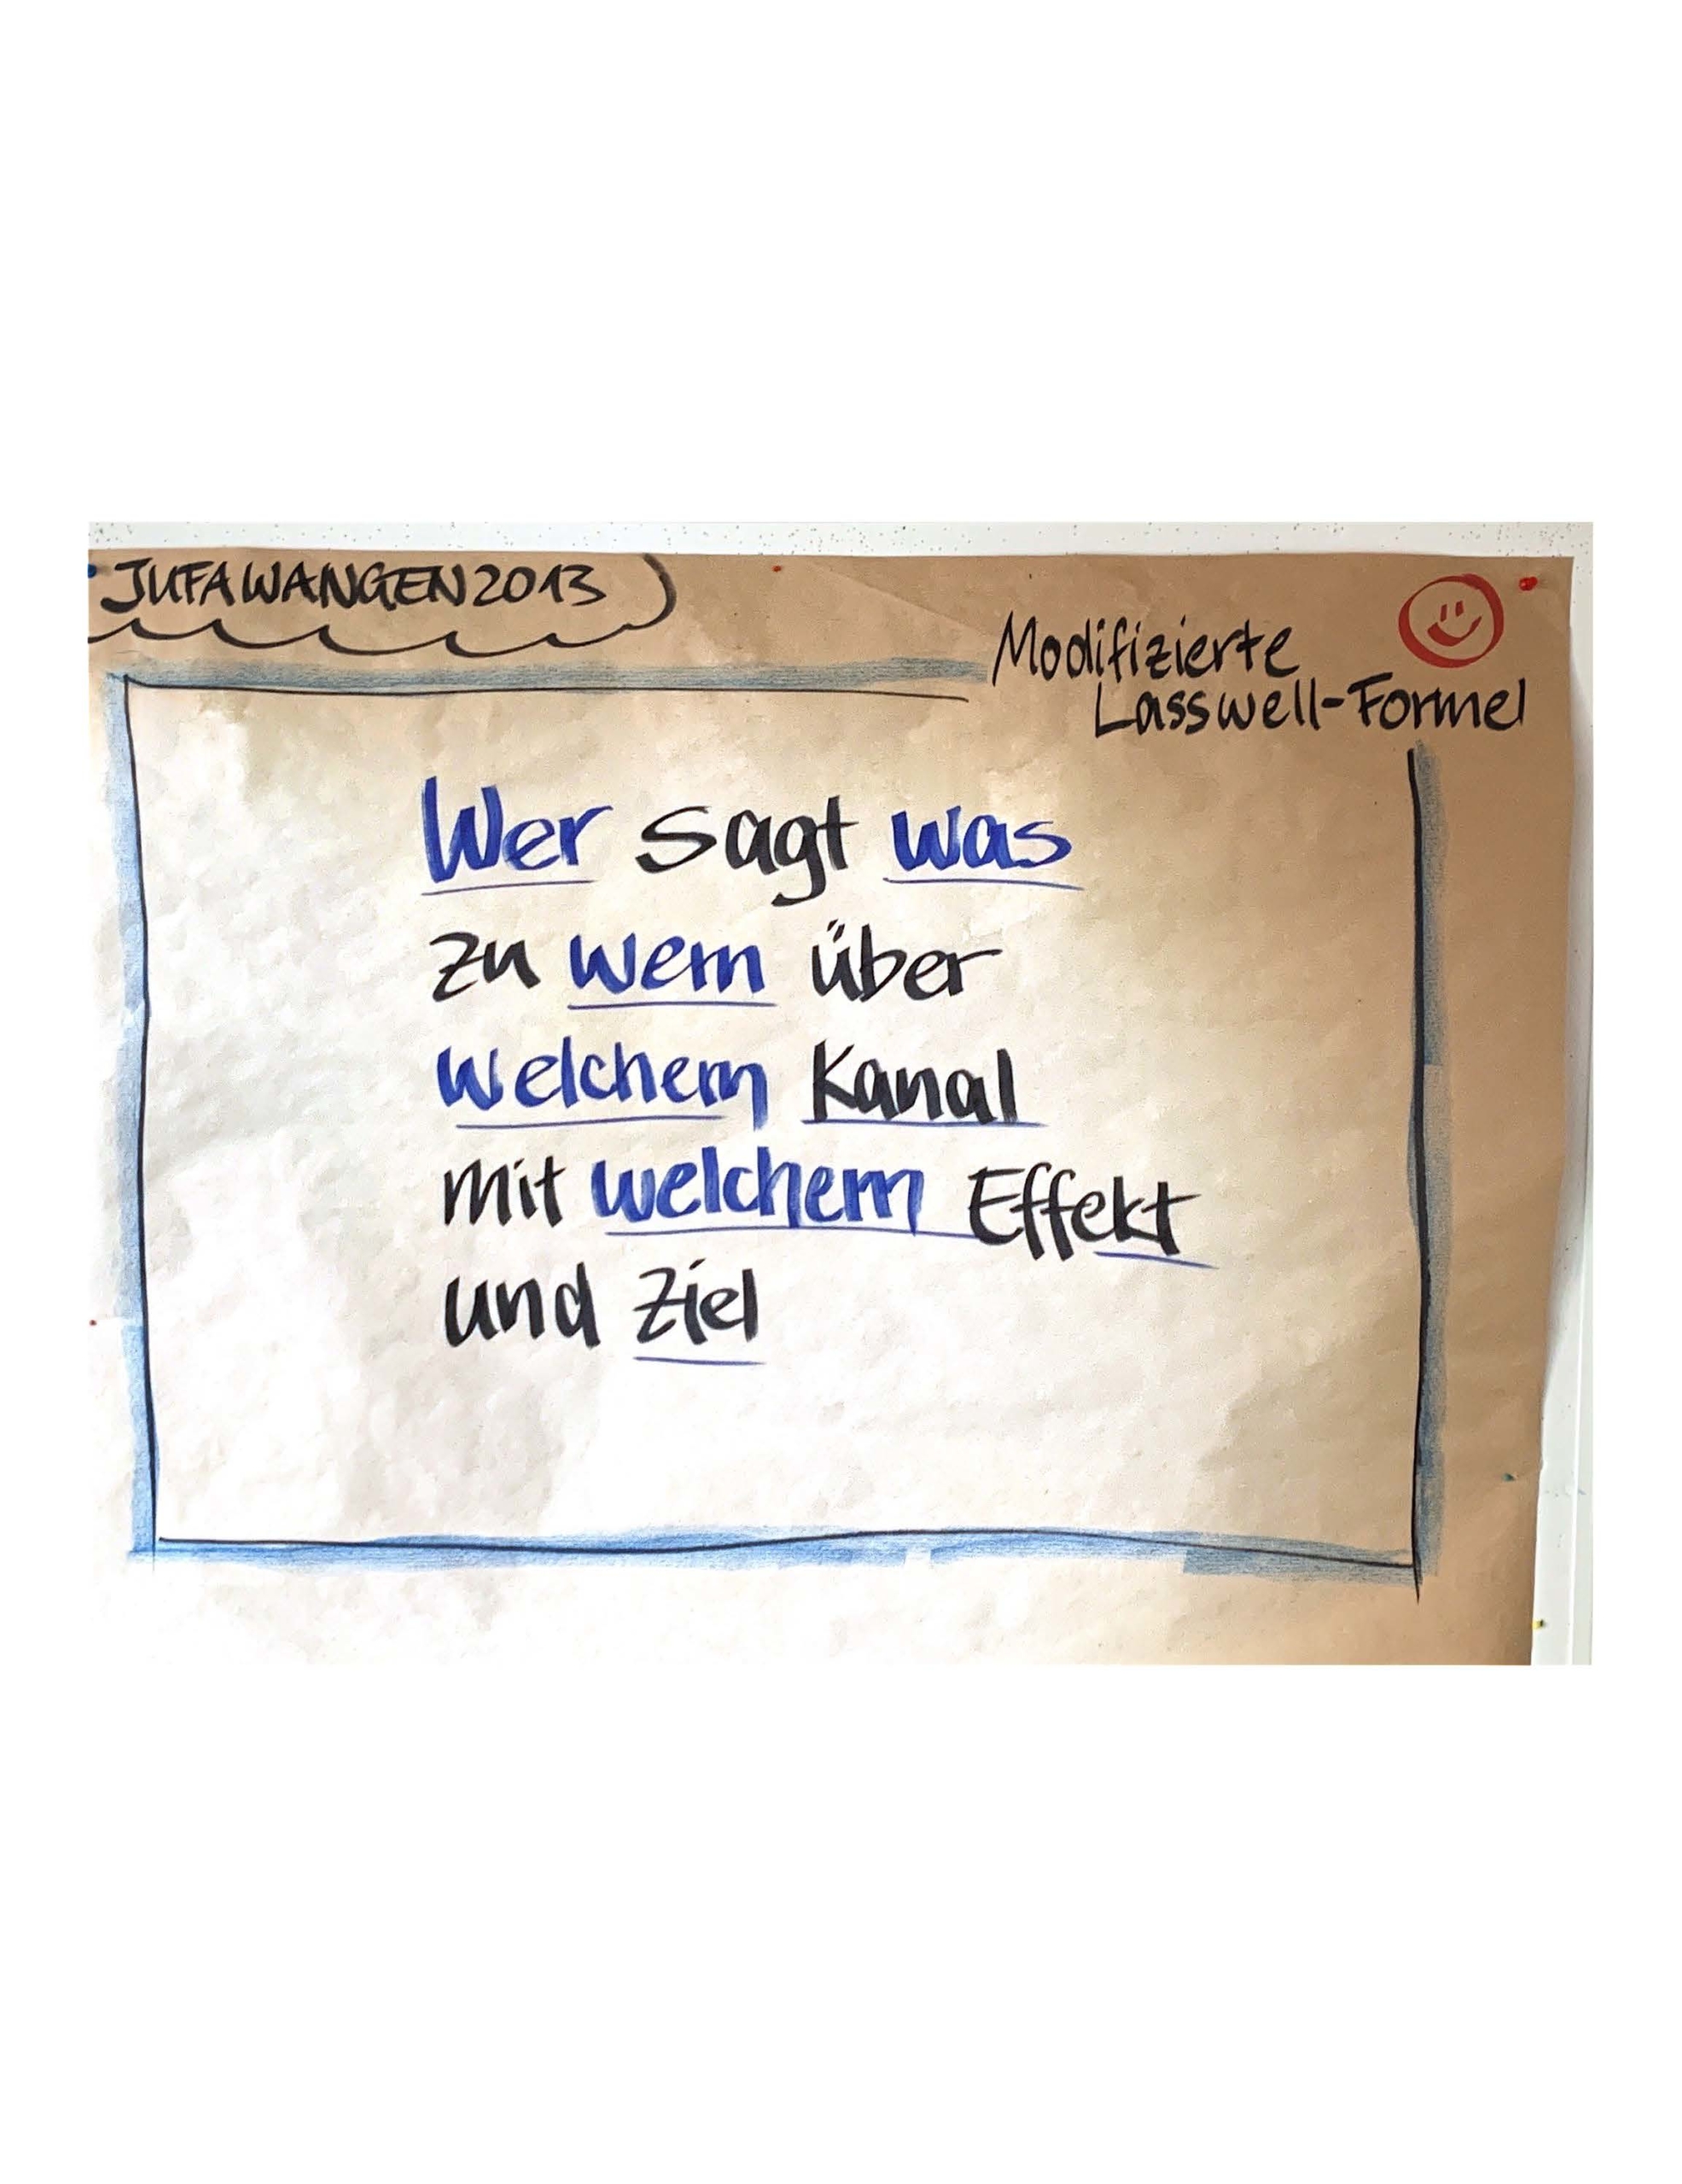 JUFA WANGEN 2013
Modifizierte
Lasswell-Formel
Wer sagt was
zu wem über
welchem Kanal
mit welchem Effekt
und Ziel